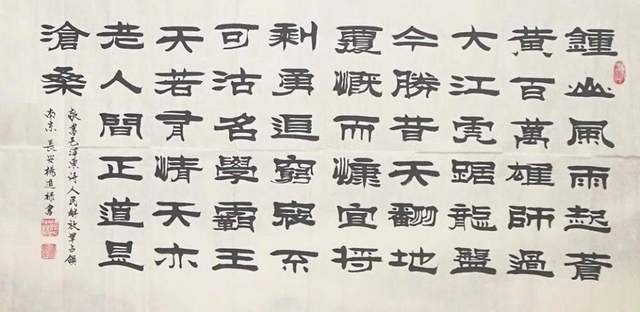 鍾山風雨起蒼
黃百萬雄師過
大江虎踞龍盤
今勝昔天翻地
覆慨而慷宜將
剩勇追窮寇不
可沽名學霸王
天若有情天亦
老人間正道是
滄桑
敬書毛澤東詩人民解放軍占領
南京 長安楊進禄書